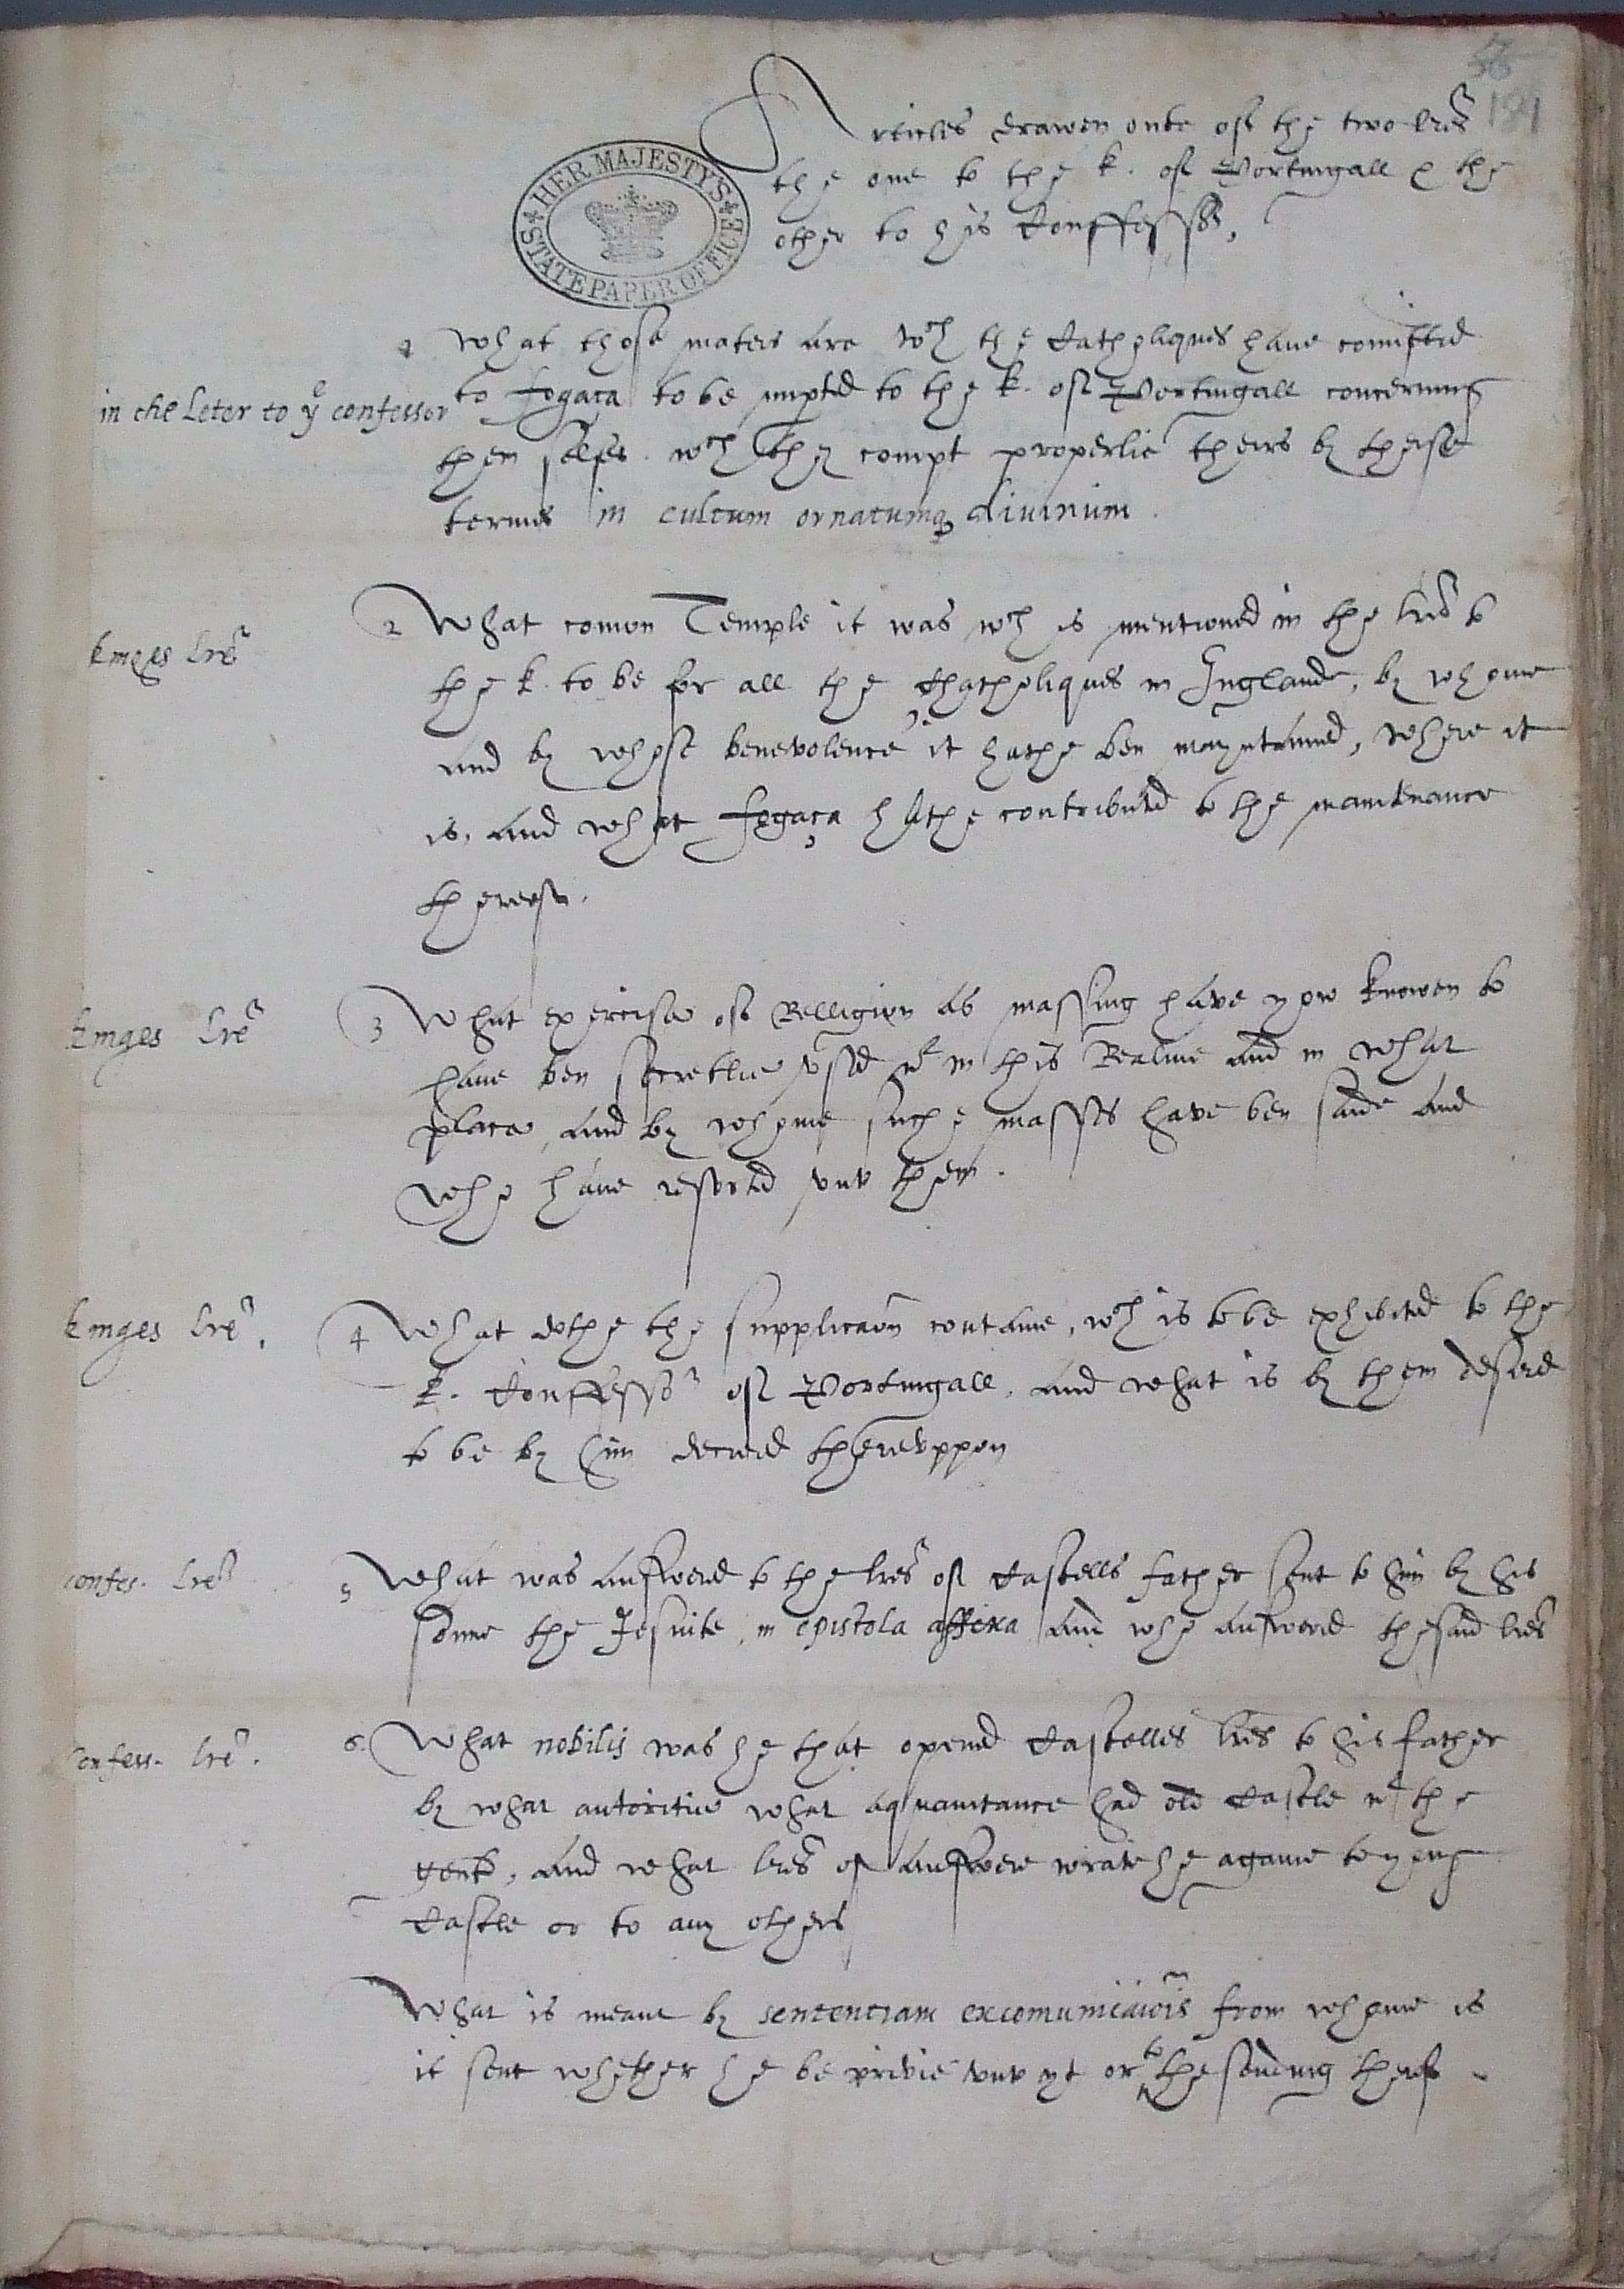 58
191
Articles drawen oute of the two lres
the one to the k. of Portingall & the
other to his Confessor,
HER MAJESTY'S
STATE PAPER OFFICE
1 What those maters are wch the Catholiques have comitted
in the Leter to ye confessor
to fogaça to be imparted to the k. of Portingall concerning
them selfes wch they compt properlie theirs by these
termes in cultum ornatumque divinum.
kinges lres
2 What comon Temple it was wch is mentioned in the lres to
the k. to be for all the Chatholiques in Inglande, by whome
and by whose benevolence it hathe ben mayntained, where it
is, and what fogaça hathe contributed to the maintenance
thereof.
kinges lre
3 What exercise of Relligion as massing have yow knowen to
have ben secretlie used wt in this Realme and in what
place, and by whome suche masses have ben saide and
who have resorted unto them.
kinges lre.
4 What dothe the supplicaon containe, wch is to be exhibited to the
k. Confessor of Portingall, and what is by them desired
to be by him decreed thereuppon
confes. lres
5 What was answered to the lres of Castells father sent to him by his
sonne the Jesuite, in epistola affixa and who answered the said lres
Confess. lre.
6. What nobilis was he that opened Castelles lres to his father
by what autoritie what aquaintance had old Castle wt the
gent, and what lres of answere wrate he againe to yong
Castle or to any others
What is meant by sententiam excomunicacois from whome is
it sent whether he be privie unto yt or to the sending therof